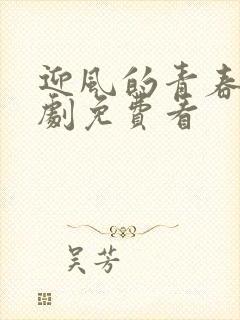 迎风的青春
劇免費看
吴芳